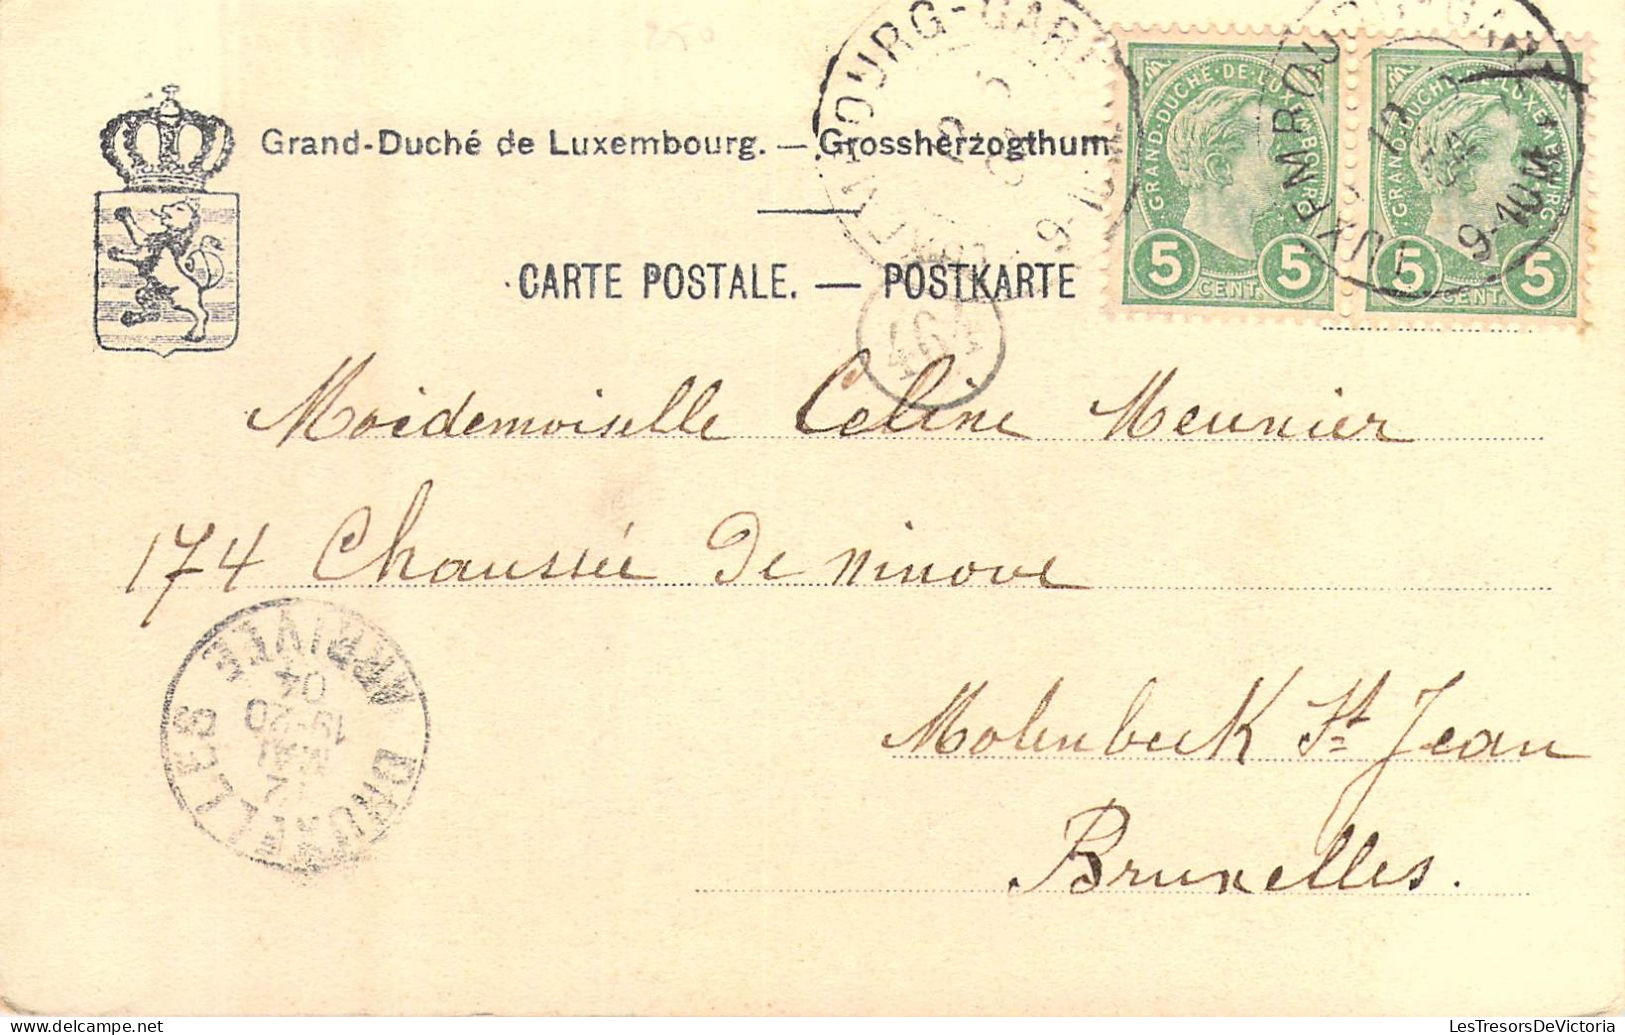 Grand-Duché de Luxembourg. — Grossherzogthum
CARTE POSTALE. — POSTKARTE
GRAND-DUCHÉ·DE·LUXEMBOURG
5 CENT. 5
GRAND-DUCHÉ·DE·LUXEMBOURG
5 CENT. 5
LUXEMBOURG-GARE
9-10M
LUXEMBOURG-GARE
9-10M
Moidemoiselle Celine Meunier
174 Chaussée De ninove
Molenbeek St Jean
Bruxelles.
BRUXELLES ARRIVEE
MAI
19-20
04
LesTresorsDeVictoria